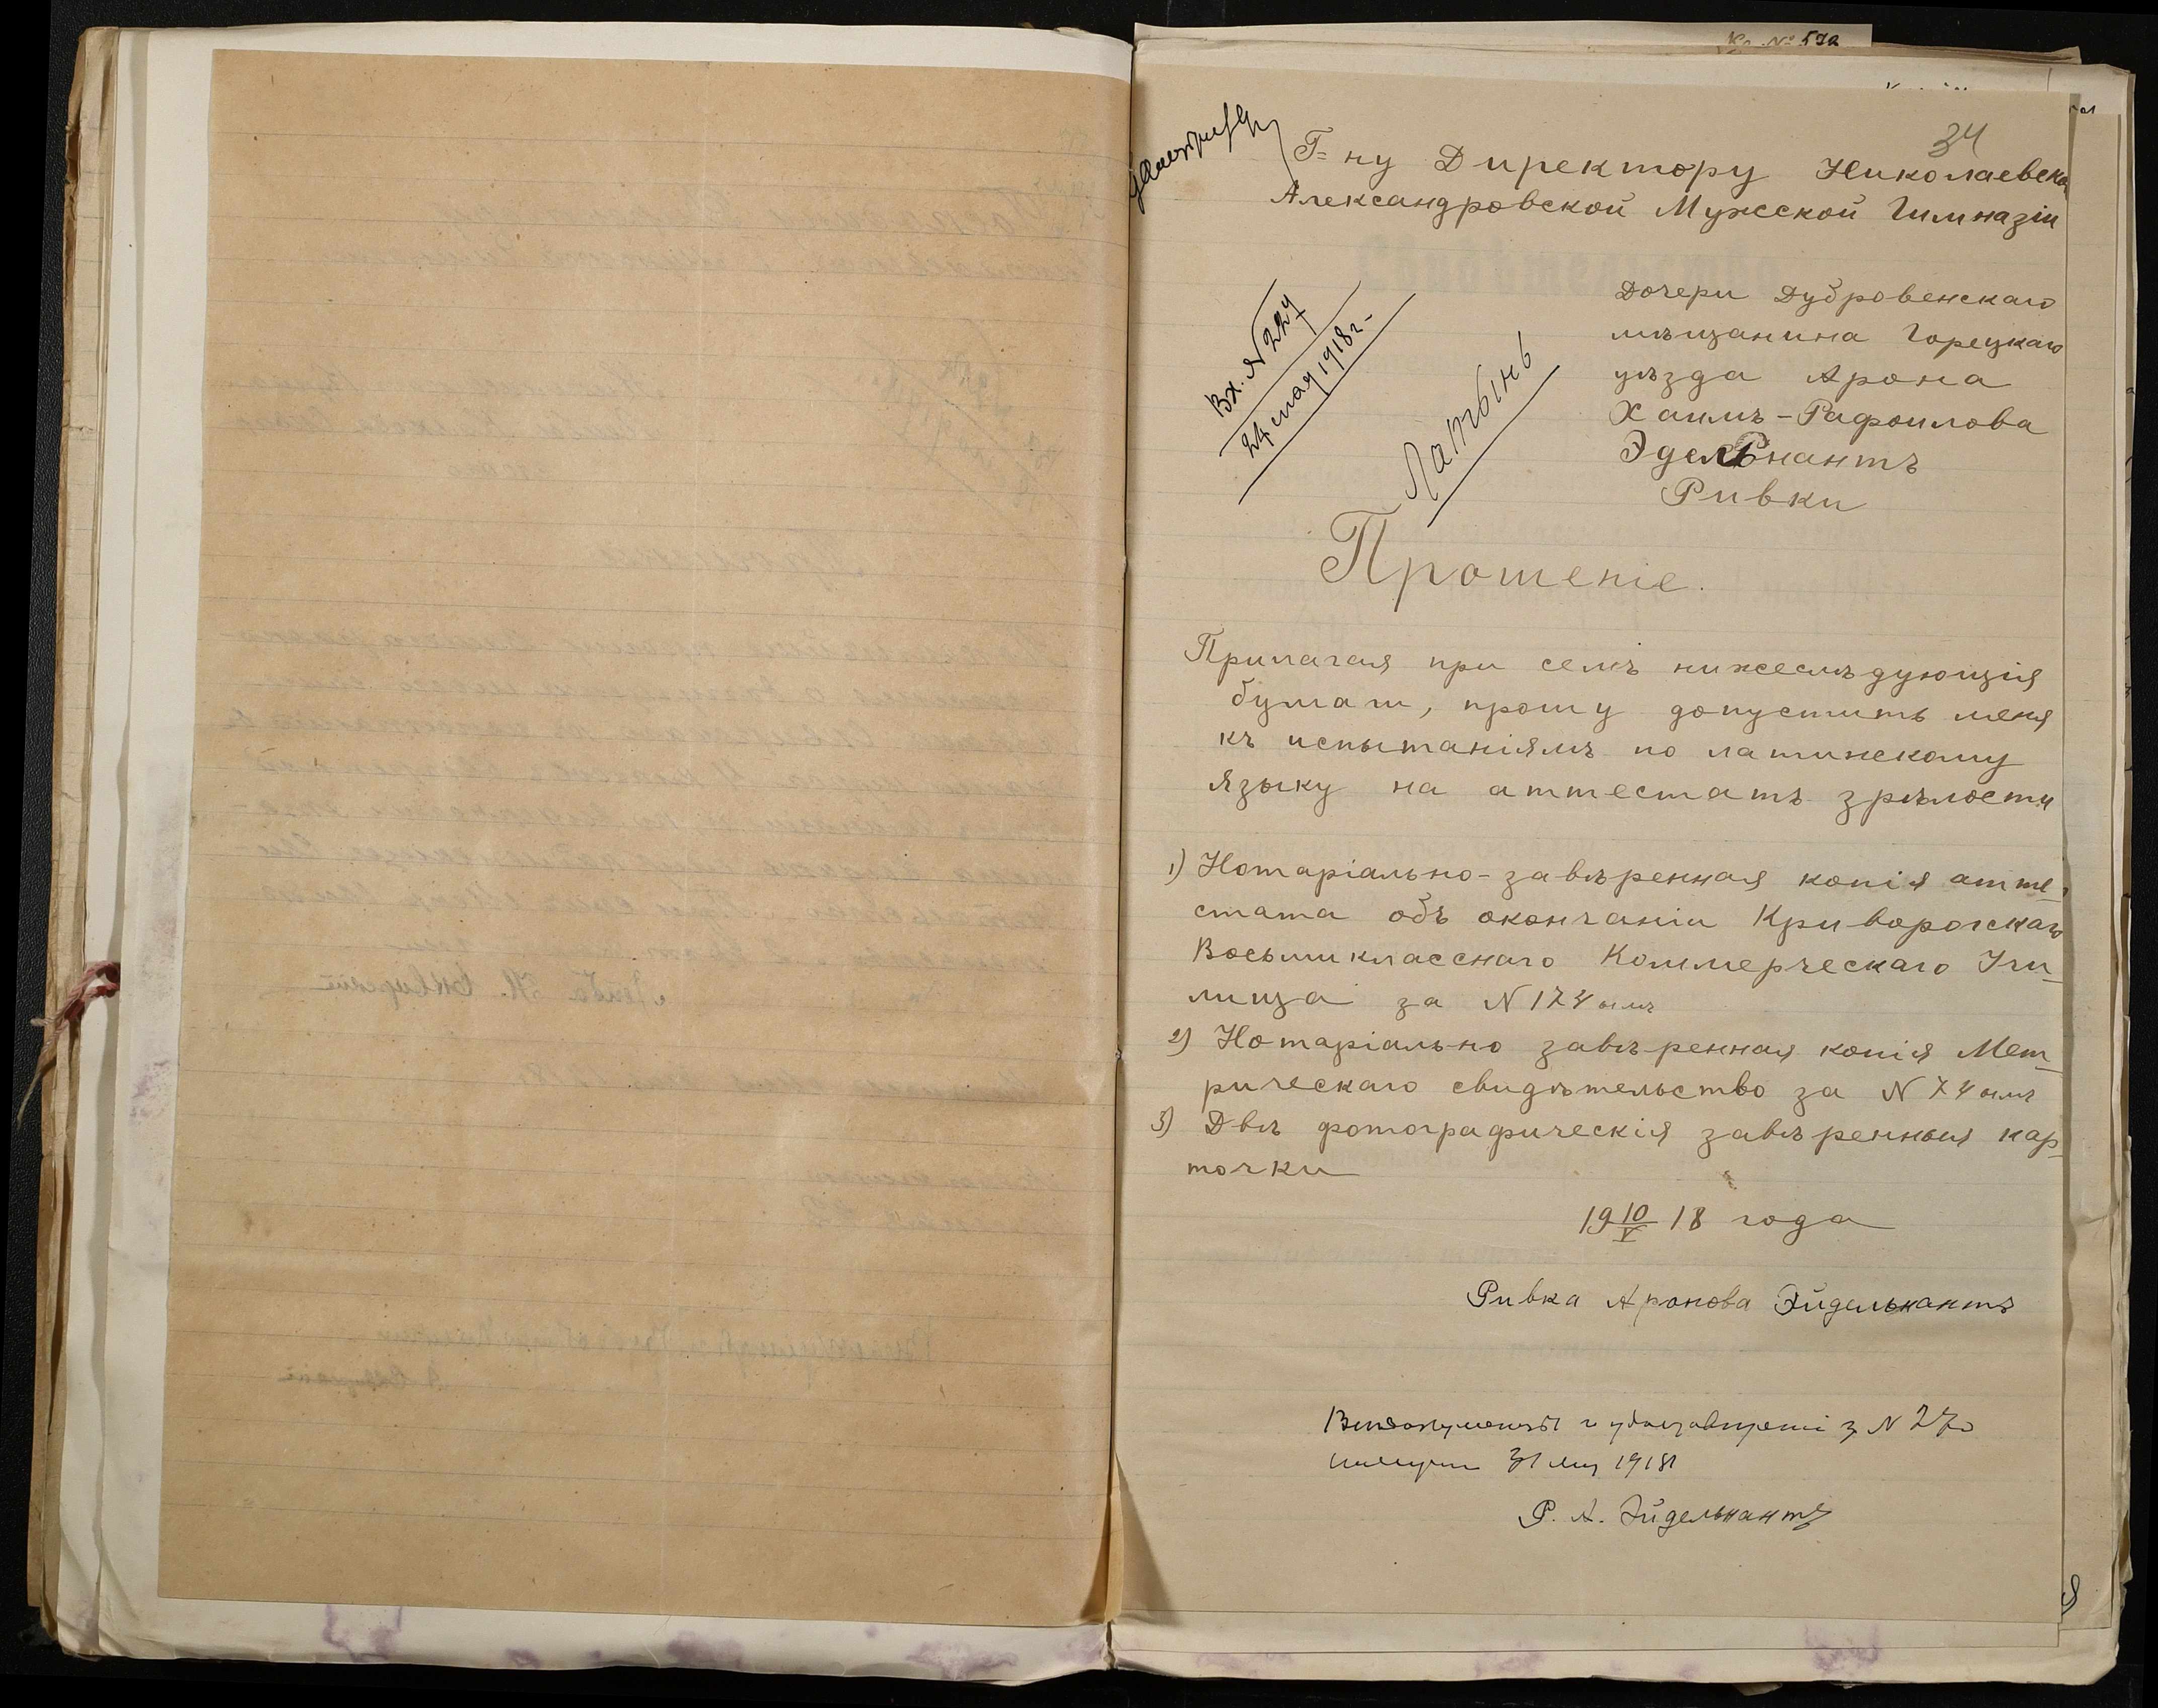 Кр. № 572
34
Г=ну Директору Николаевской
Александровской Мужской Гимназіи
Вх. № 227
24 мая 1918 г.
Латынь
Дочери Дубровенскаго
мѣщанина Горецкаго
уѣзда Арона
Хаимъ-Рафоилова
Эдельнантъ
Ривки
Прошеніе.
Прилагая при семъ нижеслѣдующія
бумаги, прошу допустить меня
къ испытаніямъ по латинскому
языку на аттестатъ зрѣлости
1) Нотаріально-завѣренная копія атте-
стата объ окончаніи Криворогскаго
Восьмикласснаго Коммерческаго Учи-
лища за № 174 ымъ
2) Нотаріально завѣренная копія Мет-
рическаго свидѣтельство за № 74 ымъ
3) Двѣ фотографическія завѣренныя кар-
точки
19 10/V 18 года
Ривка Аронова Эйдельнантъ
№ 270
31 мая 1918
Р. А. Эйдельнантъ